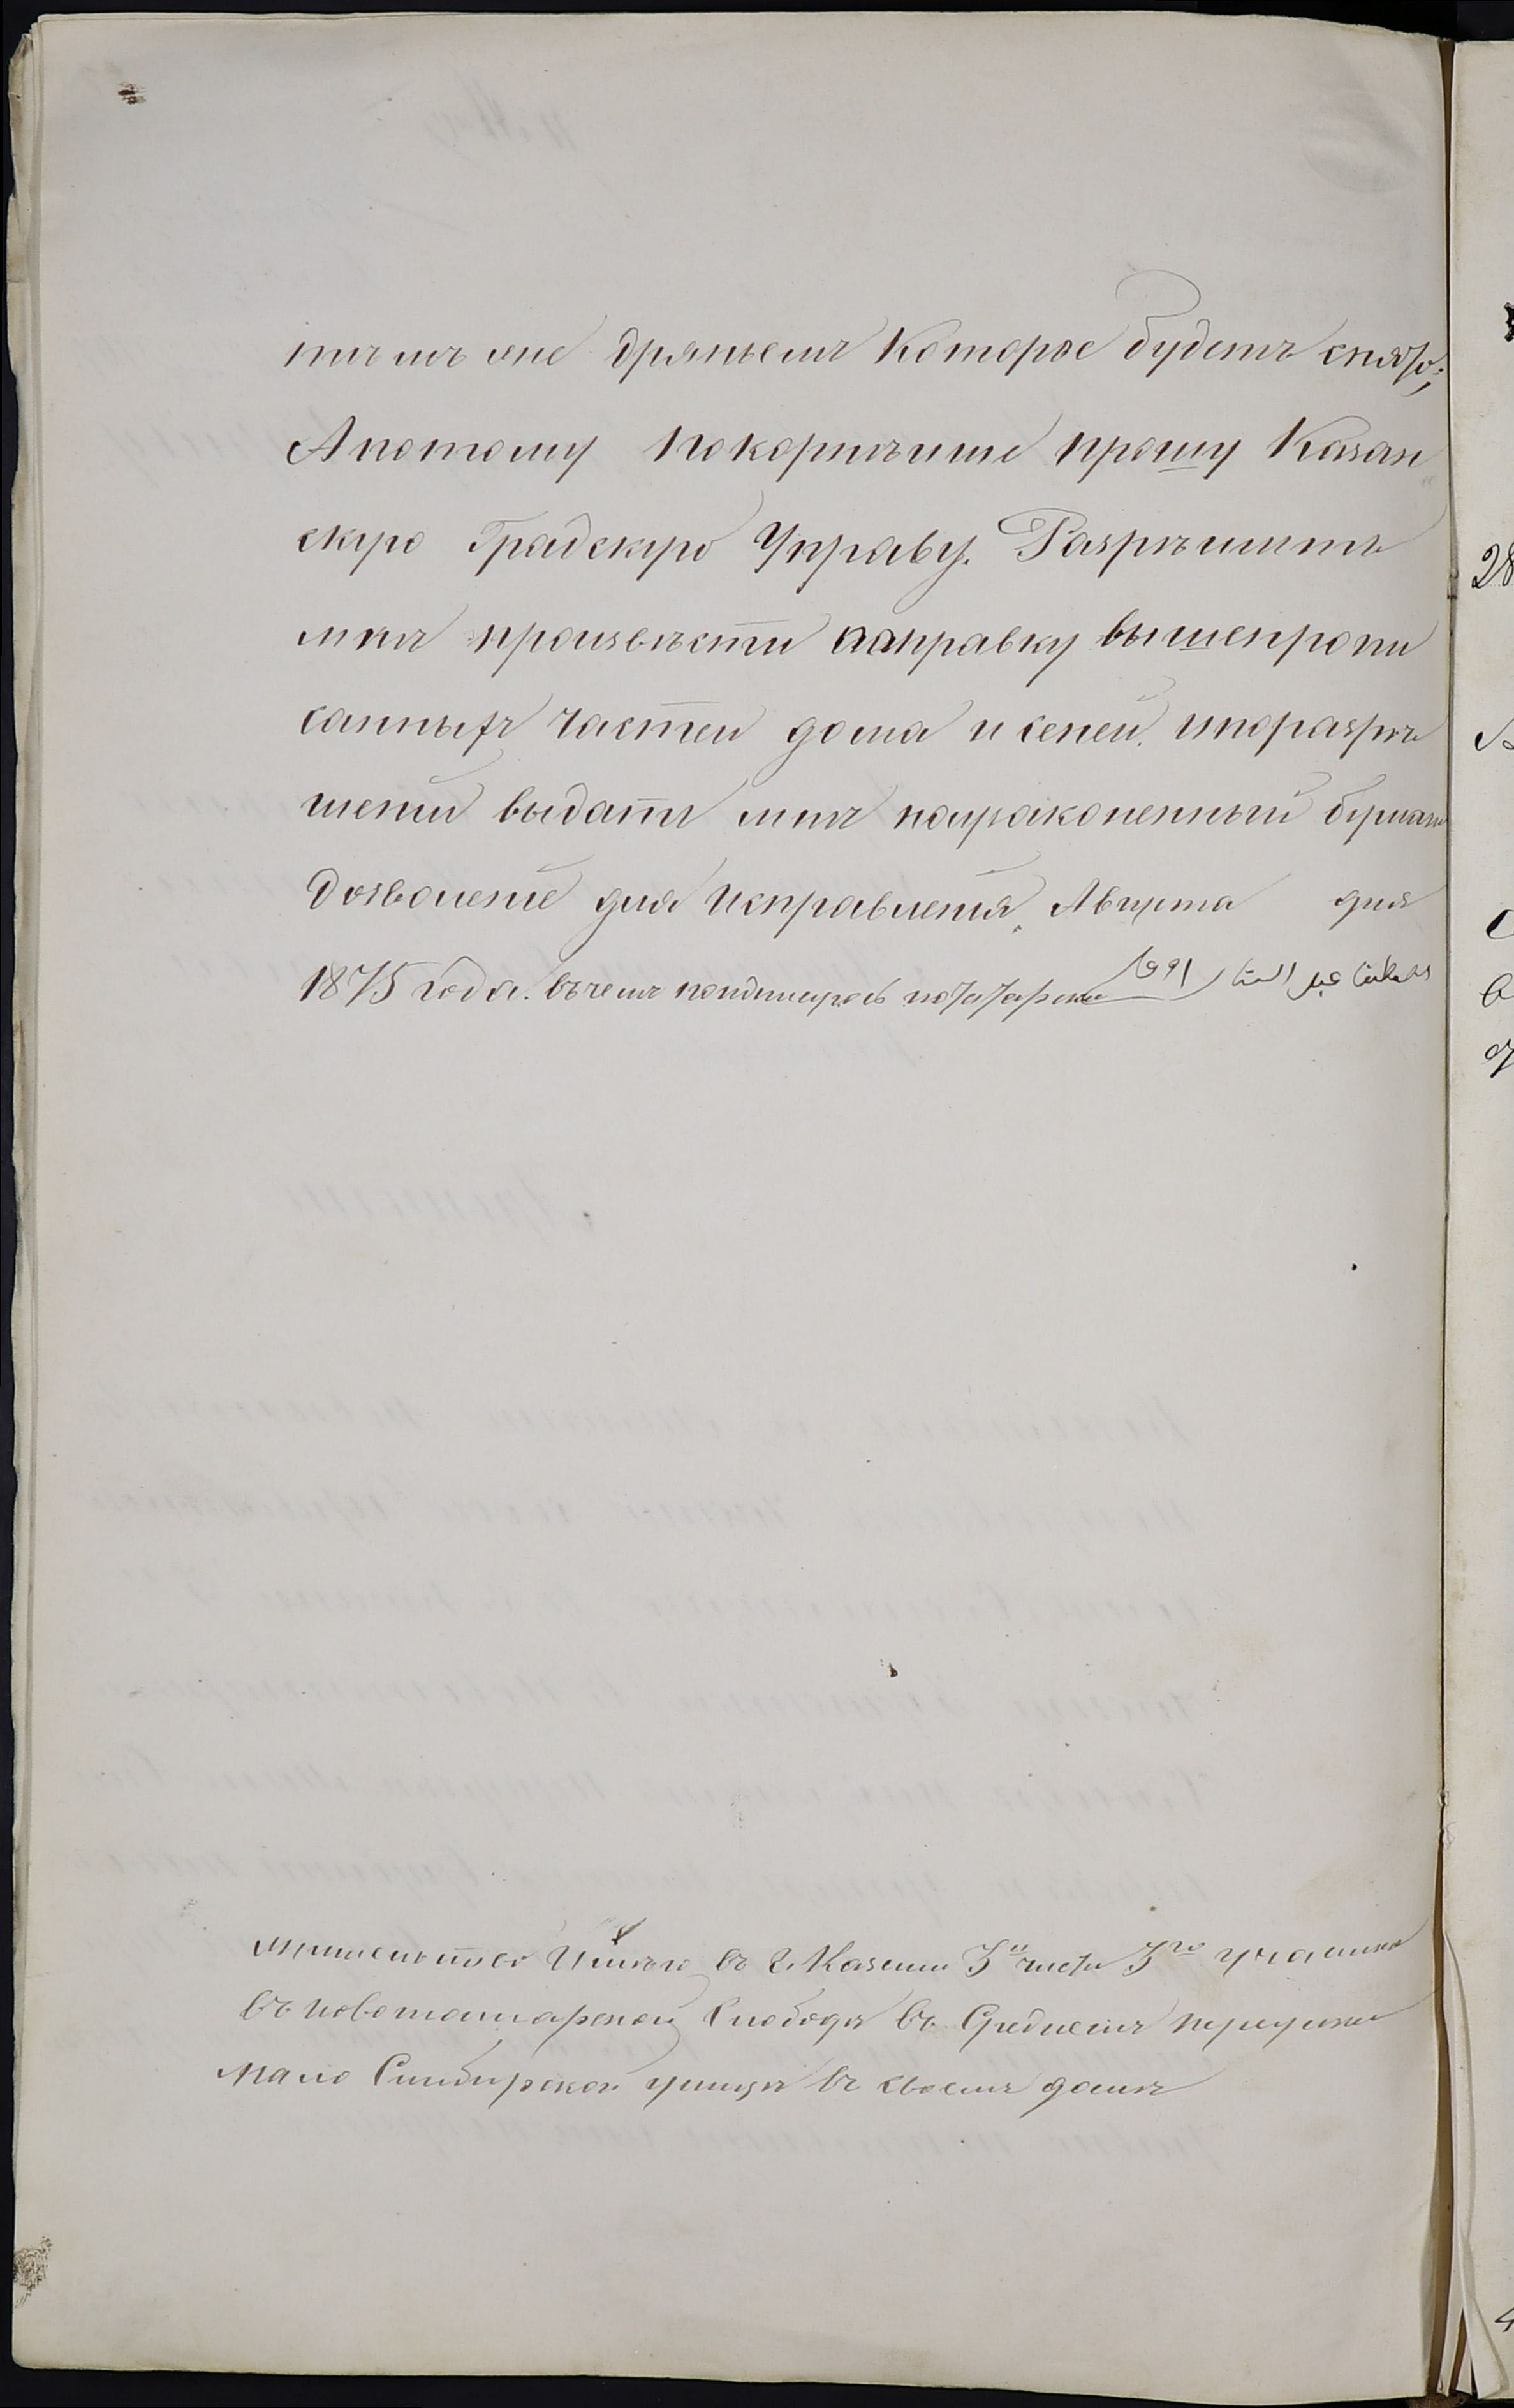 тѣмъ же дряньемъ Которое будетъ снято;
Апотому покорнѣише прошу Казан
скую Градскую Управу. Разрѣшить
мнѣ произвѣсти паправку вышепропи
санныхъ частеи дома и сеней. ипоразрѣ
шенiи выдати мнѣ
дозволенiе для исправленiя, Августа дня
1875 года. въчемъ потатарски عبد الستار
жительство Имѣю въ г. Казани 3й части 3го участка
въ новотатарской Слободѣ въ Среднемъ переулке
мало Симбирской улицѣ въ своемъ домѣ